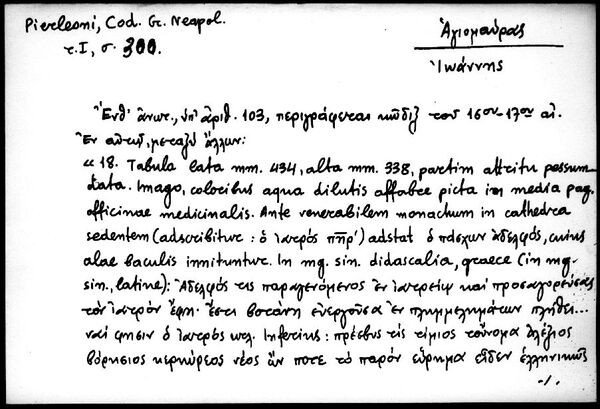 Pierleoni, Cod. Gr. Neapol.
τ. I, σ. 300.
Ἁγιομαύρας
Ἰωάννης
Ἔνθ' ἀνωτ., ὑπ' ἀριθ. 103, περιγράφεται κῶδιξ τοῦ 16ου-17ου αἰ.
Ἐν αὐτῷ, μεταξὺ ἄλλων:
« 18. Tabula lata mm. 434, alta mm. 338, partim attritu pessum
data. Imago, coloribus aqua dilutis affabre picta in media pag.
officinae medicinalis. Ante venerabilem monachum in cathedra
sedentem (adscribitur: ὁ ἰατρός πηρ') adstat ὁ πάσχων ἀδελφός, cuius
alae baculis innituntur. In mg. sin. didascalia, graece (in mg.
sin., latine): Ἀδελφός τις παραγενόμενος ἐν ἰατρείῳ καὶ προσαγορεύσας
τὸν ἰατρόν ἔφη· ἔστι βοτάνη ἐνεργοῦσα ἐν πλημμελημάτων πλήθει...
ναί φησιν ὁ ἰατρός κτλ. Inferius: πρέσβυς τις τίμιος τοὔνομα ἀλέξιος
βόρησιος κερκύρεος νέος ὤν ποτε τὸ παρόν εὕρημα εἶδεν ἑλληνικῶς
-/.